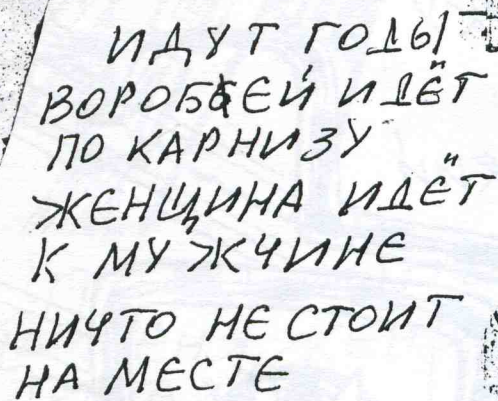 ИДУТ ГОДЫ
ВОРОБЬЕЙ ИДЁТ
ПО КАРНИЗУ
ЖЕНЩИНА ИДЁТ
К МУЖЧИНЕ
НИЧТО НЕ СТОИТ
НА МЕСТЕ